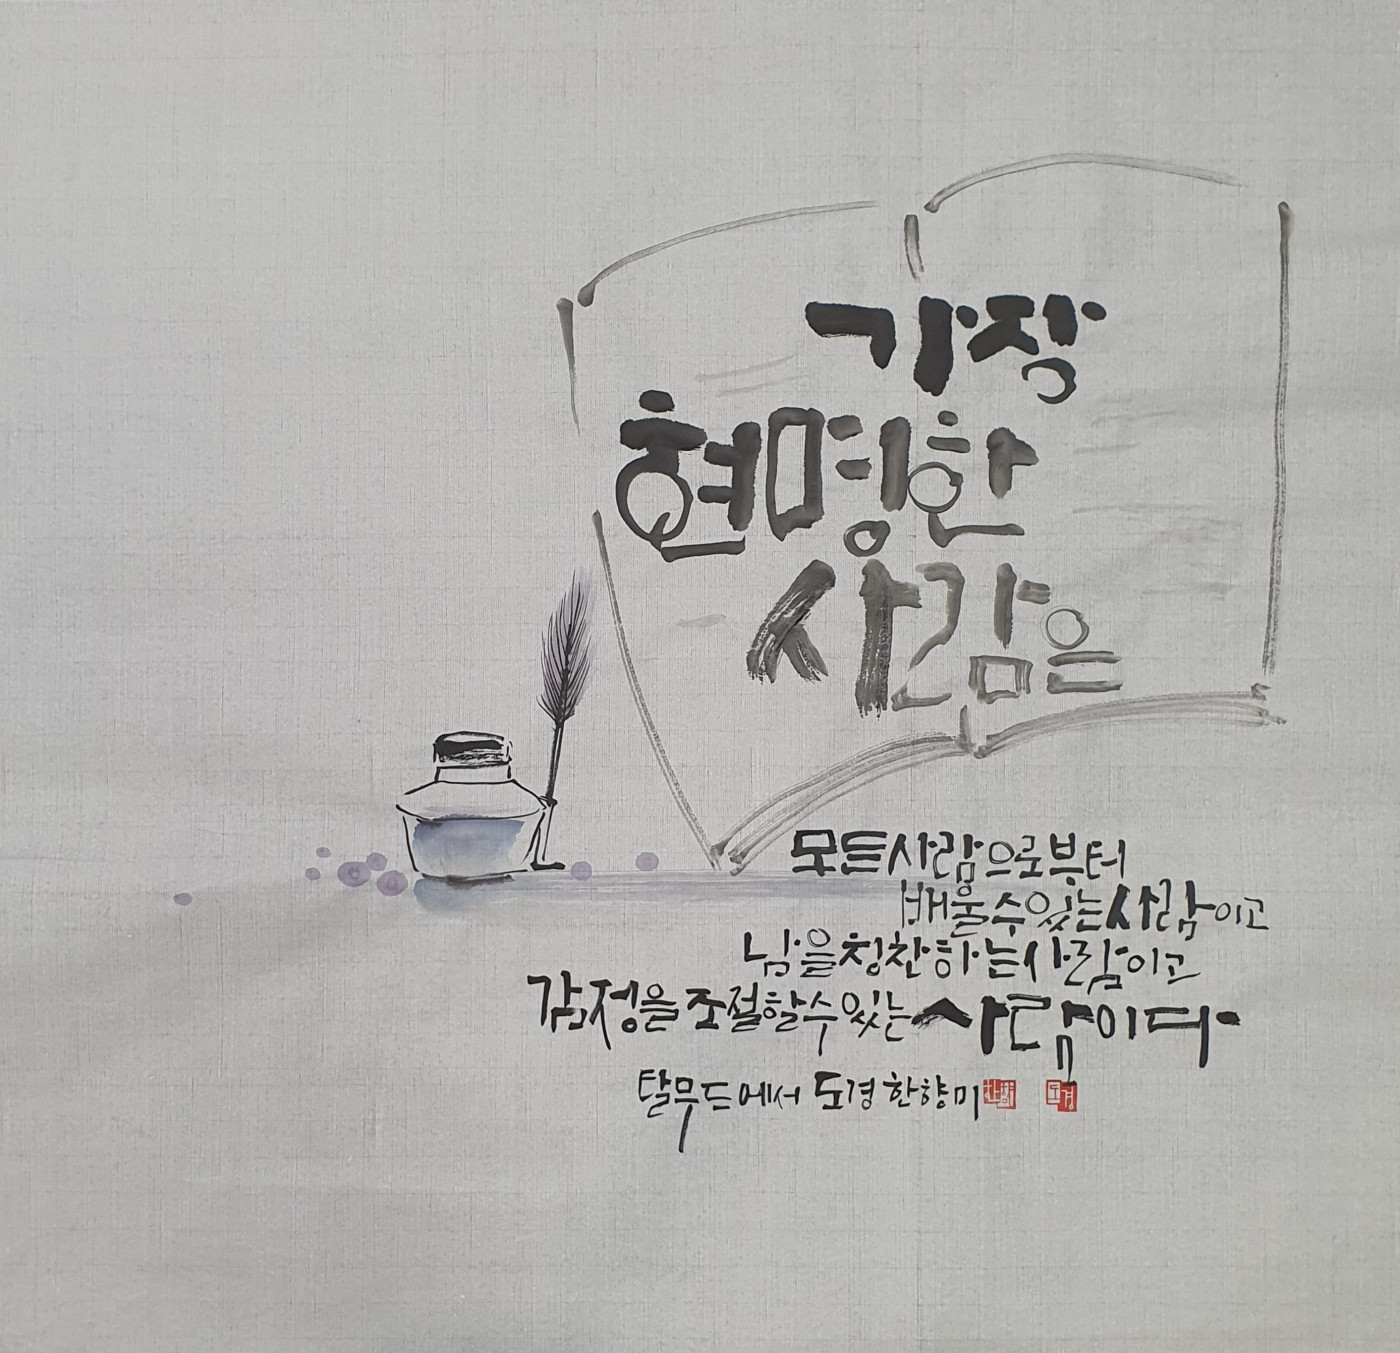 가장
현명한
사람은
모든 사람으로부터
배울 수 있는 사람이고
남을 칭찬하는 사람이고
감정을 조절할 수 있는 사람이다
탈무드에서 도경 한향미
도경